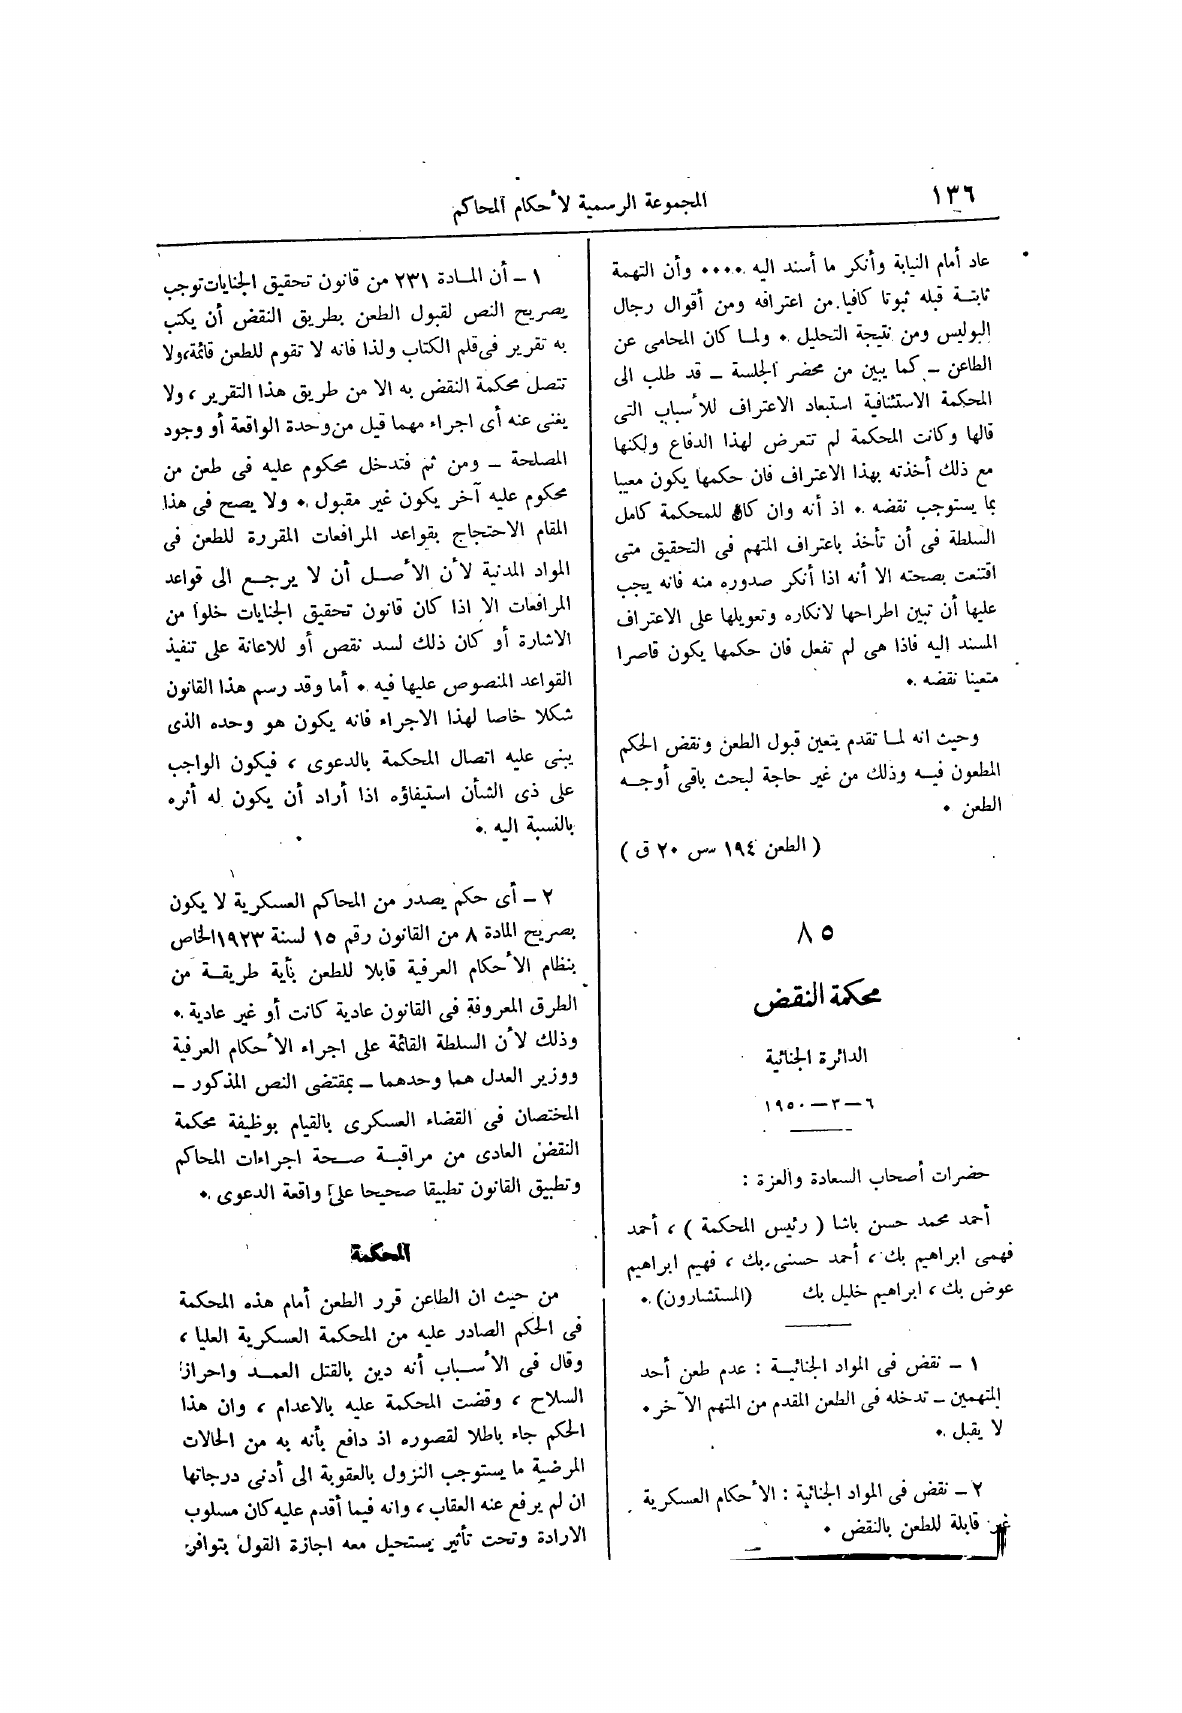 ١٣٦
المجموعة الرسمية لأحكام المحاكم
عاد أمام النيابة وأنكر ما أسند اليه .... وأن التهمة
ثابتة قبله ثبوتا كافيا من اعترافه ومن أقوال رجال
البوليس ومن نتيجة التحليل . ولما كان المحامى عن
الطاعن ـ كما يبين من محضر الجلسة ـ قد طلب الى
المحكمة الاستئنافية استبعاد الاعتراف للأسباب التى
قالها وكانت المحكمة لم تتعرض لهذا الدفاع ولكنها
مع ذلك أخذته بهذا الاعتراف فان حكمها يكون معيبا
بما يستوجب نقضه . اذ أنه وان كان للمحكمة كامل
السلطة فى أن تأخذ باعتراف المتهم فى التحقيق متى
اقتنعت بصحته الا أنه اذا أنكر صدوره منه فانه يجب
عليها أن تبين اطراحها لانكاره وتعويلها على الاعتراف
المسند اليه فاذا هى لم تفعل فان حكمها يكون قاصرا
متعينا نقضه .
وحيث انه لما تقدم يتعين قبول الطعن ونقض الحكم
المطعون فيه وذلك من غير حاجة لبحث باقى أوجه
الطعن .
( الطعن ١٩٤ س ٢٠ ق )
٨٥
محكمة النقض
الدائرة الجنائية
٦ ـ ٣ ـ ١٩٥٠
حضرات أصحاب السعادة والعزة :
أحمد محمد حسن باشا ( رئيس المحكمة ) ، أحمد
فهمى ابراهيم بك ، أحمد حسنى بك ، فهيم ابراهيم
عوض بك ، ابراهيم خليل بك (المستشارون) .
١ ـ نقض فى المواد الجنائية : عدم طعن أحد
المتهمين ـ تدخله فى الطعن المقدم من المتهم الآخر .
لا يقبل .
٢ ـ نقض فى المواد الجنائية : الأحكام العسكرية
غير قابلة للطعن بالنقض .
١ ـ أن المادة ٢٣١ من قانون تحقيق الجنايات توجب
بصريح النص لقبول الطعن بطريق النقض أن يكتب
به تقرير فى قلم الكتاب ولذا فانه لا تقوم للطعن قائمة، ولا
تتصل محكمة النقض به الا من طريق هذا التقرير ، ولا
يغنى عنه أى اجراء مهما قيل من وحدة الواقعة أو وجود
المصلحة ـ ومن ثم فتدخل محكوم عليه فى طعن من
محكوم عليه آخر يكون غير مقبول . ولا يصح فى هذا
المقام الاحتجاج بقواعد المرافعات المقررة للطعن فى
المواد المدنية لأن الأصل أن لا يرجع الى قواعد
المرافعات الا اذا كان قانون تحقيق الجنايات خلوا من
الاشارة أو كان ذلك لسد نقص أو للاعانة على تنفيذ
القواعد المنصوص عليها فيه . أما وقد رسم هذا القانون
شكلا خاصا لهذا الاجراء فانه يكون هو وحده الذى
يبنى عليه اتصال المحكمة بالدعوى ، فيكون الواجب
على ذى الشأن استيفاؤه اذا أراد أن يكون له أثره
بالنسبة اليه .
٢ ـ أى حكم يصدر من المحاكم العسكرية لا يكون
بصريح المادة ٨ من القانون رقم ١٥ لسنة ١٩٢٣ الخاص
بنظام الأحكام العرفية قابلا للطعن بأية طريقة من
الطرق المعروفة فى القانون عادية كانت أو غير عادية .
وذلك لأن السلطة القائمة على اجراء الأحكام العرفية
ووزير العدل هما وحدهما ـ بمقتضى النص المذكور ـ
المختصان فى القضاء العسكرى بالقيام بوظيفة محكمة
النقض العادى من مراقبة صحة اجراءات المحاكم
وتطبيق القانون تطبيقا صحيحا على واقعة الدعوى .
المحكمة
من حيث ان الطاعن قرر الطعن أمام هذه المحكمة
فى الحكم الصادر عليه من المحكمة العسكرية العليا ،
وقال فى الأسباب أنه دين بالقتل العمد واحراز
السلاح ، وقضت المحكمة عليه بالاعدام ، وان هذا
الحكم جاء باطلا لقصوره اذ دافع بأنه به من الحالات
المرضية ما يستوجب النزول بالعقوبة الى أدنى درجاتها
ان لم يرفع عنه العقاب ، وانه فيما أقدم عليه كان مسلوب
الارادة وتحت تأثير يستحيل معه اجازة القول بتوافر